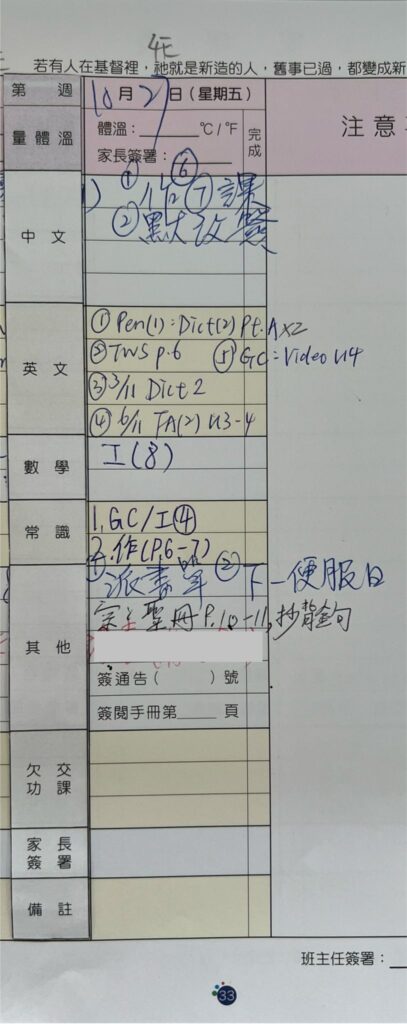 4E
若有人在基督裡，祂就是新造的人，舊事已過，都變成新
第 週 10月27日（星期五）
量體溫 體溫：℃/℉ 完成 注意
家長簽署：
中文 ① 作⑦課 ⑥
② 默改簽
英文 ① Pen(1): Dict(2) Pt.A x2
② TWS p.6 ⑤ GC: Video U4
③ 3/11 Dict 2
④ 6/11 TA(2) U3-4
數學 工(8)
常識 1. GC/工④
2. 作(P.6-7)
其他 ① 派書單 ② 下一便服日
宗: 聖冊 P.10-11, 抄背金句
簽通告（ ）號
簽閱手冊第 頁
欠交功課
家長簽署
備註
班主任簽署：
33